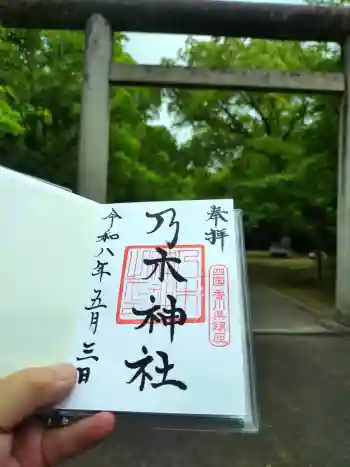 奉拝
四国 香川県鎮座
乃木神社
令和八年五月三日